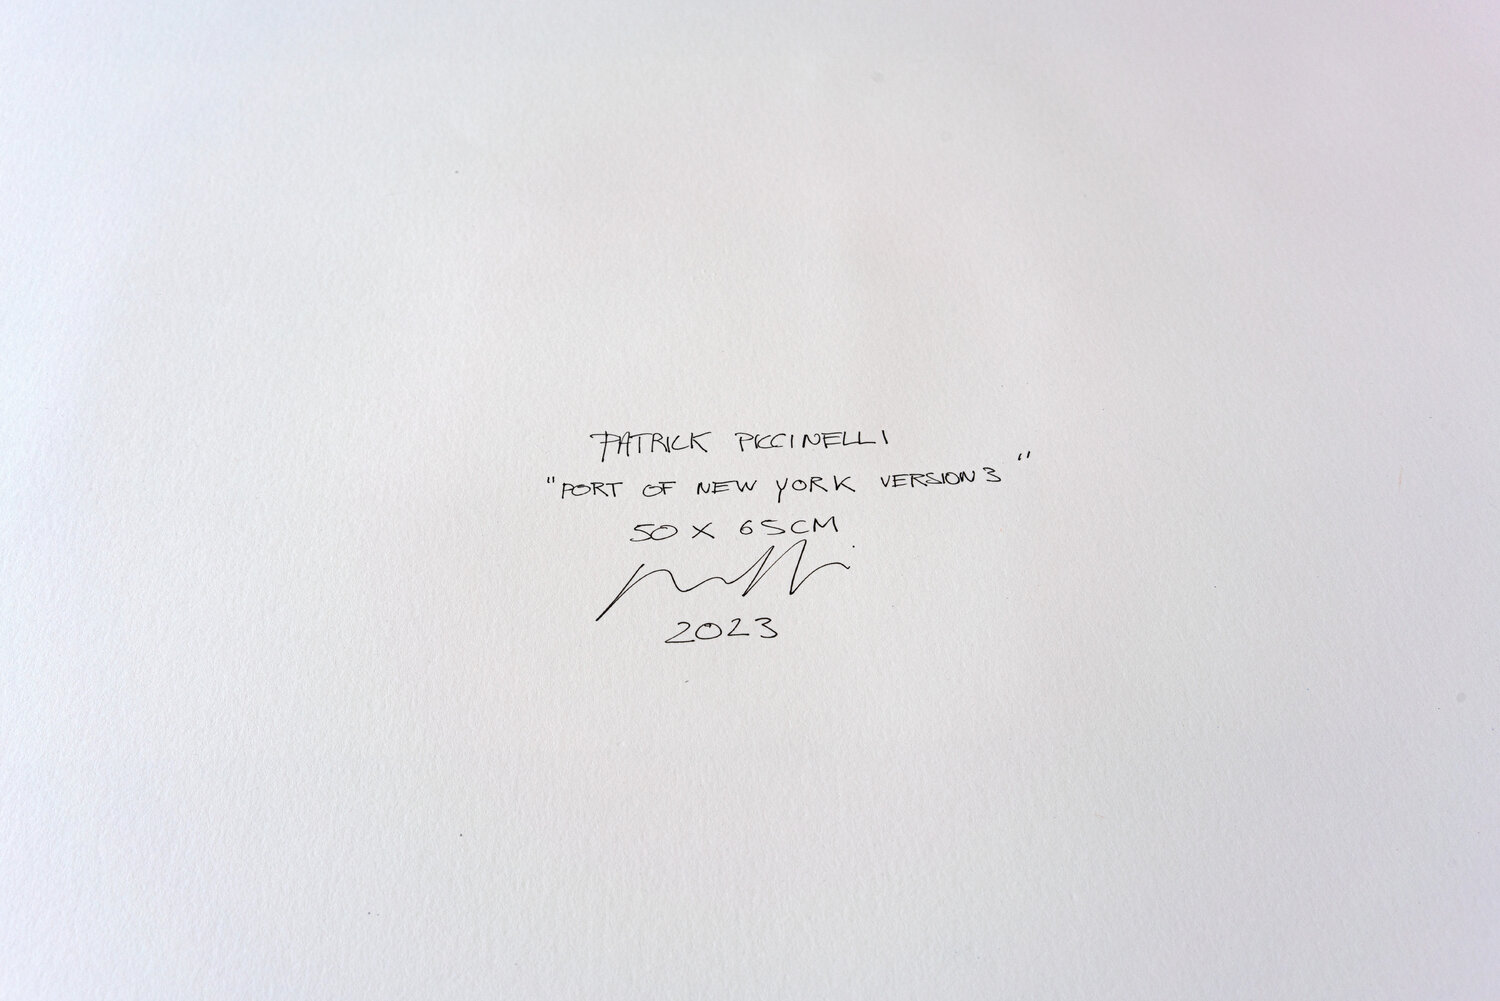 PATRICK PICCINELLI
"PORT OF NEW YORK VERSION 3"
50 X 65CM
2023